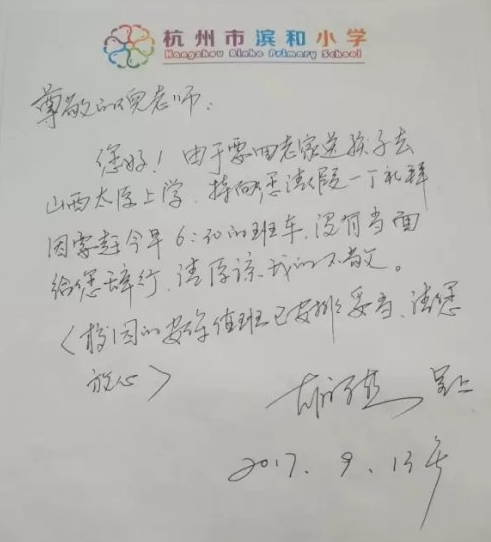 杭州市滨和小学
Hangzhou Binhe Primary School
尊敬的倪老师：
您好！由于要回老家送孩子去
山西太原上学，特向您请假一丁礼拜
因需赶今早6:30的班车，没有当面
给您辞行，请原谅我的不敬。
（校园的安保值班已安排妥当，请您
放心）
呈上
2017.9.13号